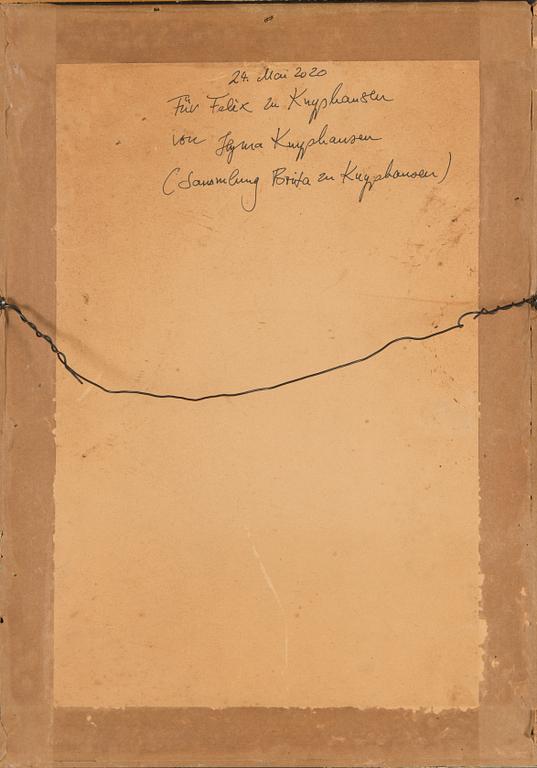 24. Mai 2020
Für Felix zu Knyphausen
von Hyma Knyphausen
(Sammlung Brita zu Knyphausen)